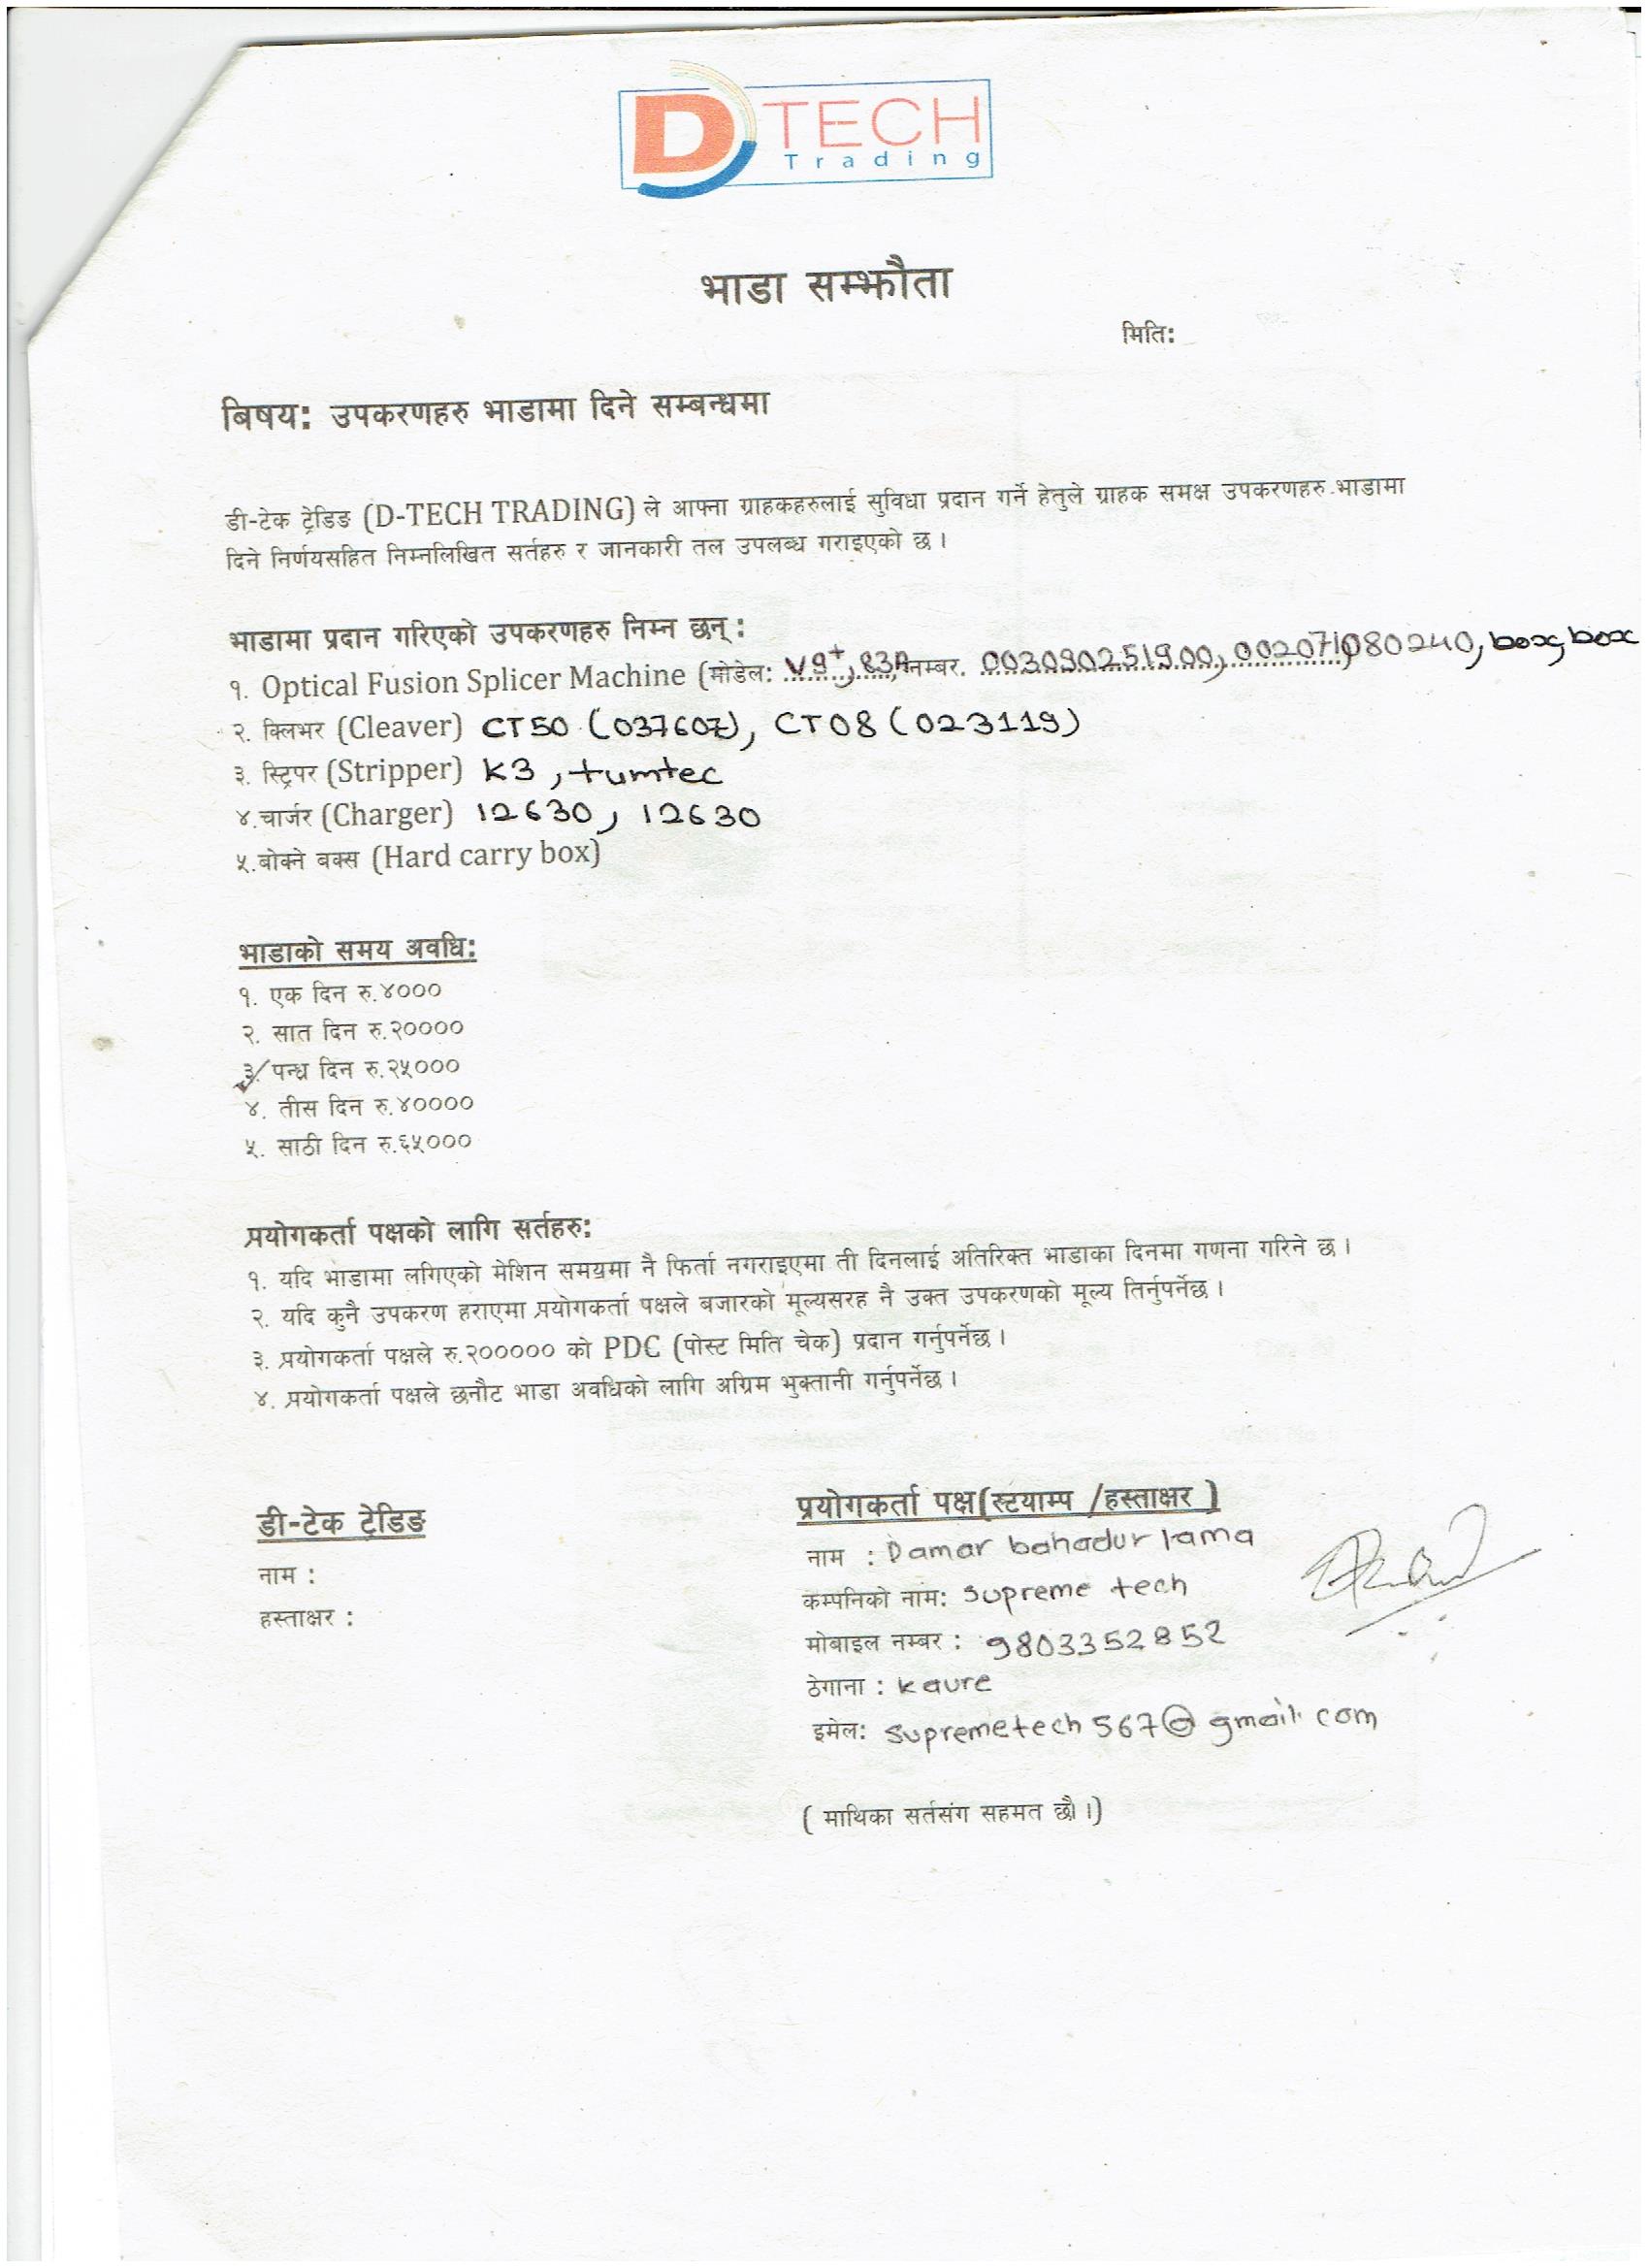 D TECH
Trading
भाडा सम्झौता
मिति:
बिषय: उपकरणहरु भाडामा दिने सम्बन्धमा
डी-टेक ट्रेडिङ (D-TECH TRADING) ले आफ्ना ग्राहकहरुलाई सुविधा प्रदान गर्ने हेतुले ग्राहक समक्ष उपकरणहरु भाडामा
दिने निर्णयसहित निम्नलिखित सर्तहरु र जानकारी तल उपलब्ध गराइएको छ ।
भाडामा प्रदान गरिएको उपकरणहरु निम्न छन् :
१. Optical Fusion Splicer Machine (मोडेल: V9+, 83A नम्बर. 003090251900, 002071080240, box, box
२. क्लिभर (Cleaver) CT50 (037607), CT08 (023119)
३. स्ट्रिपर (Stripper) K3, tumtec
४.चार्जर (Charger) 12630, 12630
५.बोक्ने बक्स (Hard carry box)
भाडाको समय अवधि:
१. एक दिन रु.४०००
२. सात दिन रु.२००००
३. पन्ध्र दिन रु.२५०००
४. तीस दिन रु.४००००
५. साठी दिन रु.६५०००
प्रयोगकर्ता पक्षको लागि सर्तहरु:
१. यदि भाडामा लगिएको मेशिन समयमा नै फिर्ता नगराइएमा ती दिनलाई अतिरिक्त भाडाका दिनमा गणना गरिने छ ।
२. यदि कुनै उपकरण हराएमा प्रयोगकर्ता पक्षले बजारको मूल्यसरह नै उक्त उपकरणको मूल्य तिर्नुपर्नेछ ।
३. प्रयोगकर्ता पक्षले रु.२००००० को PDC (पोस्ट मिति चेक) प्रदान गर्नुपर्नेछ ।
४. प्रयोगकर्ता पक्षले छनौट भाडा अवधिको लागि अग्रिम भुक्तानी गर्नुपर्नेछ ।
डी-टेक ट्रेडिङ
नाम :
हस्ताक्षर :
प्रयोगकर्ता पक्ष(स्टयाम्प /हस्ताक्षर )
नाम : Damar bahadur lama
कम्पनिको नाम: supreme tech
मोबाइल नम्बर : 9803352852
ठेगाना : kavre
इमेल: supremetech567@gmail.com
( माथिका सर्तसंग सहमत छौ ।)